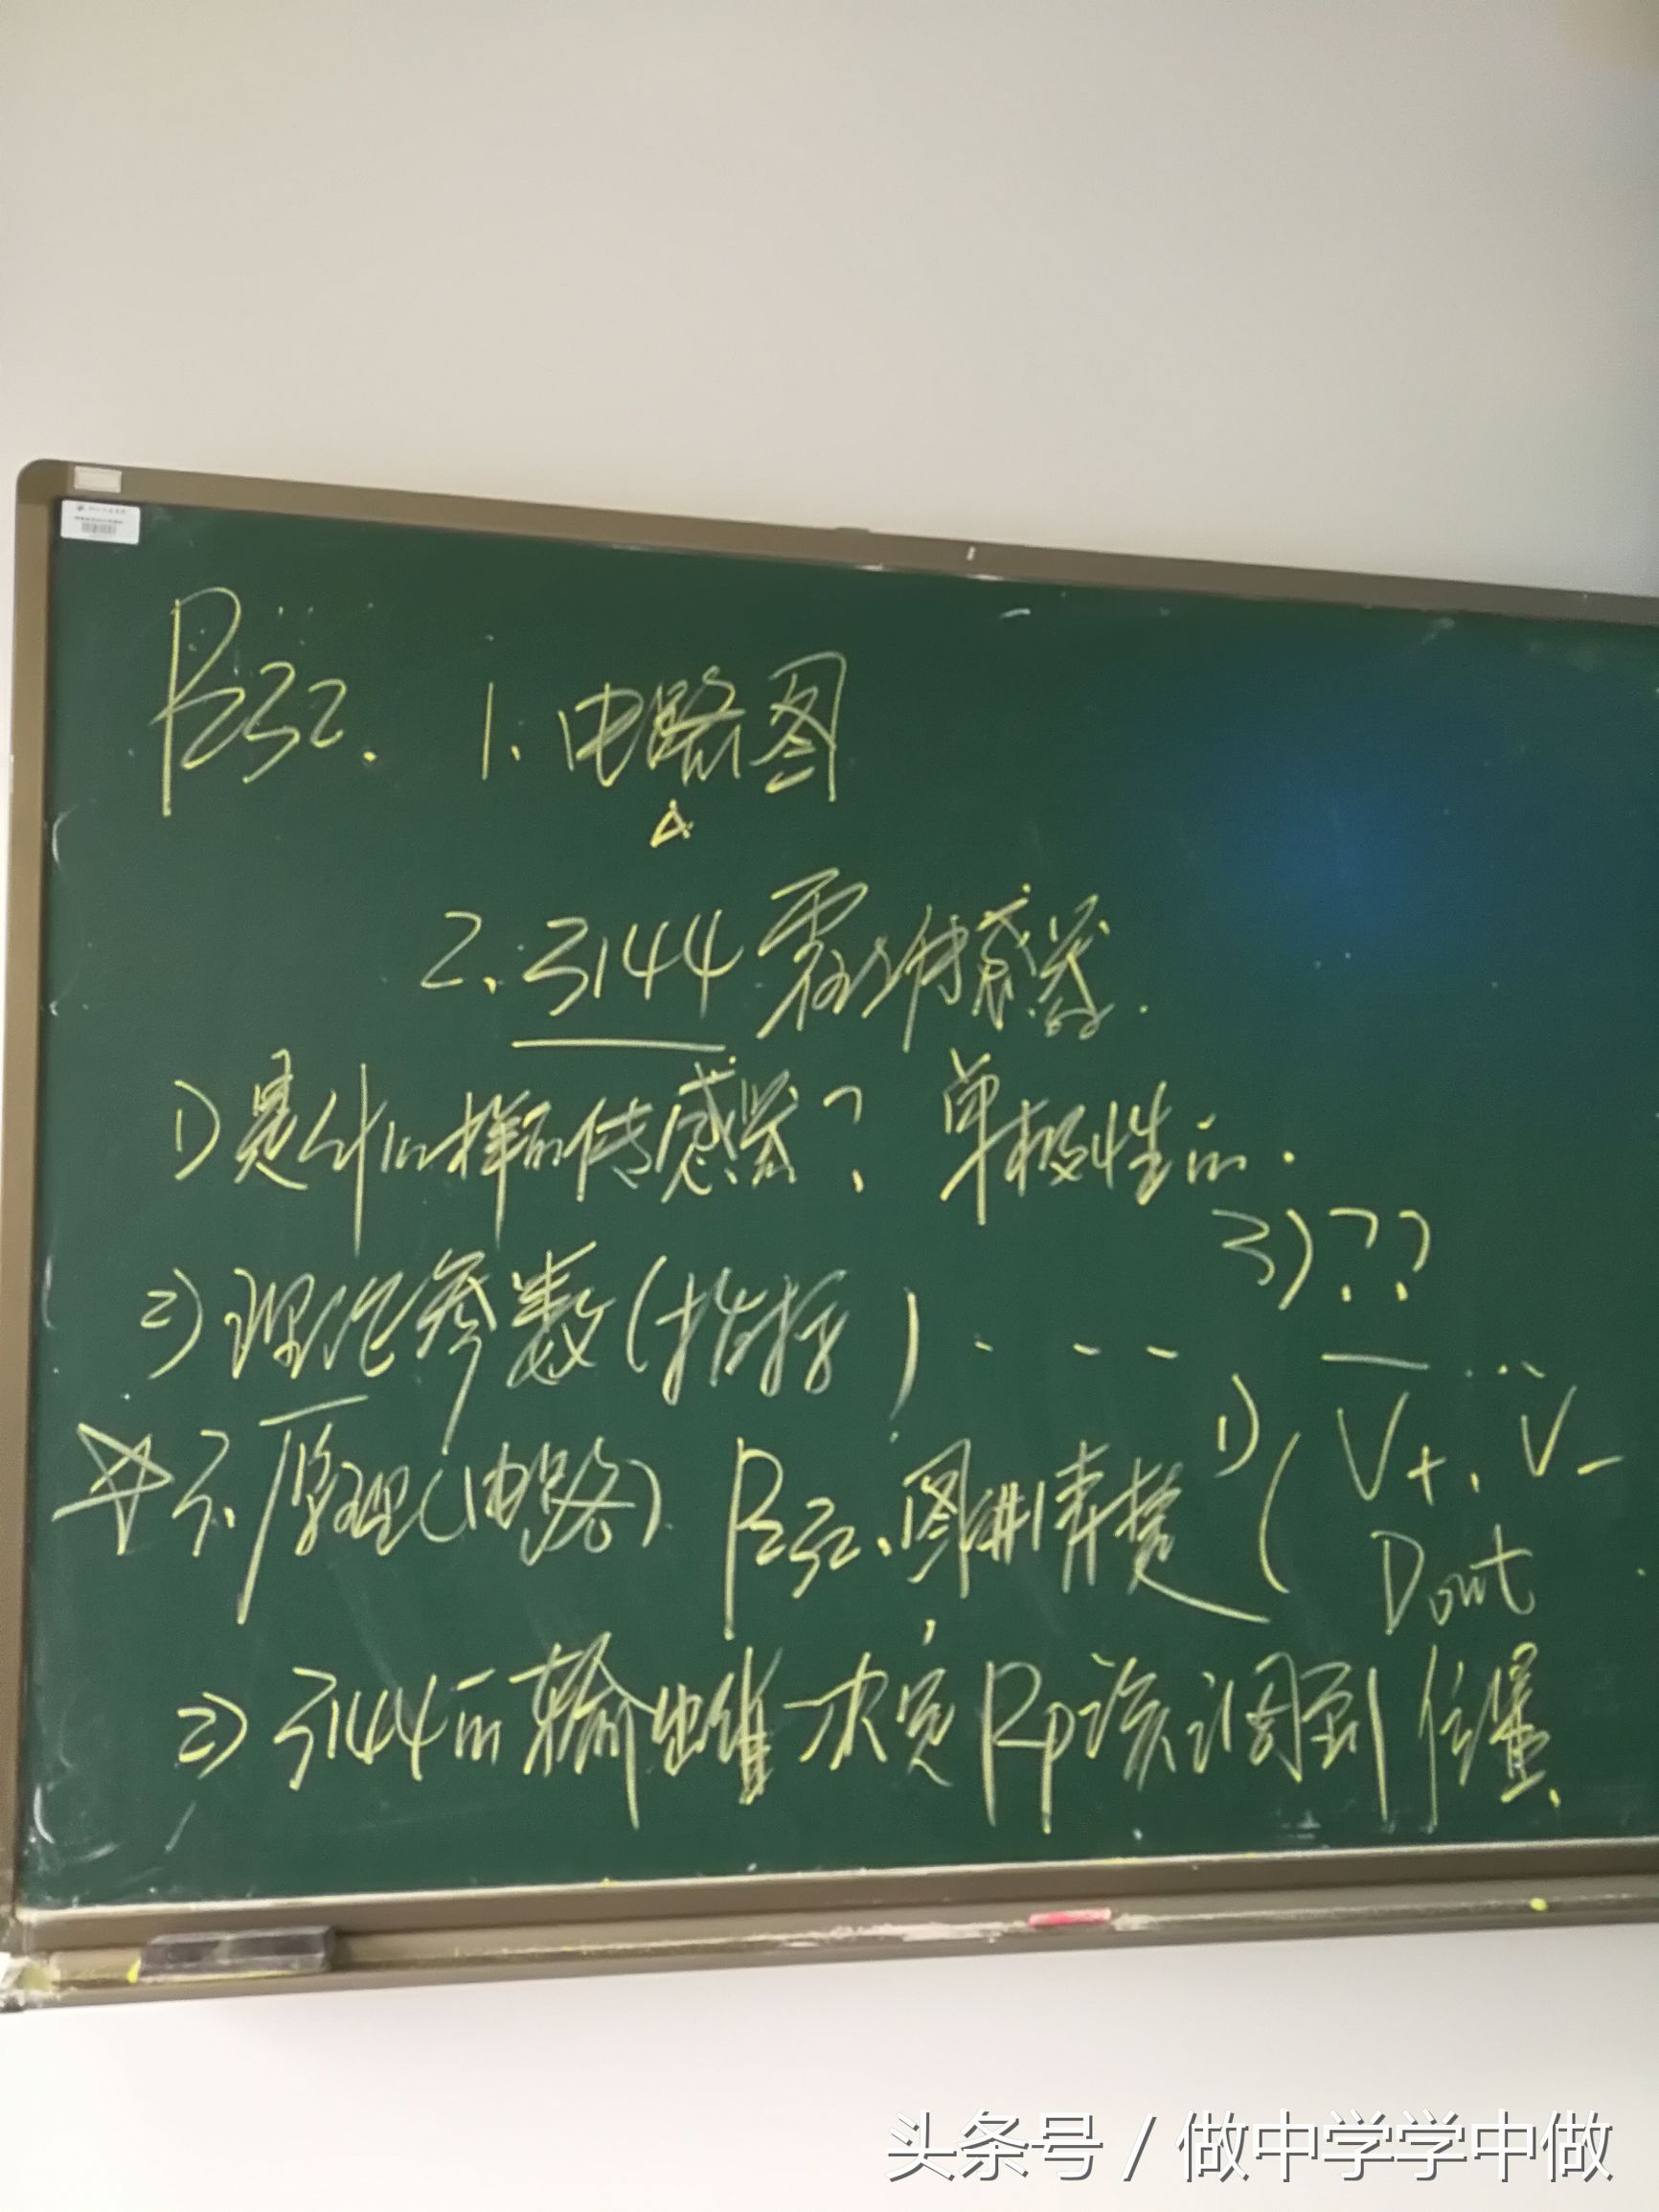 P232. 1.电路图
2.3144霍尔传感器.
1)是什么样的传感器? 单极性的.
2)理论参数(指标)...
3)??
☆3.原理(电路) P232.图讲清楚 1)(V+, V-
Dout
2)3144的输出唯一决定Rp该调到位置.
头条号/做中学学中做